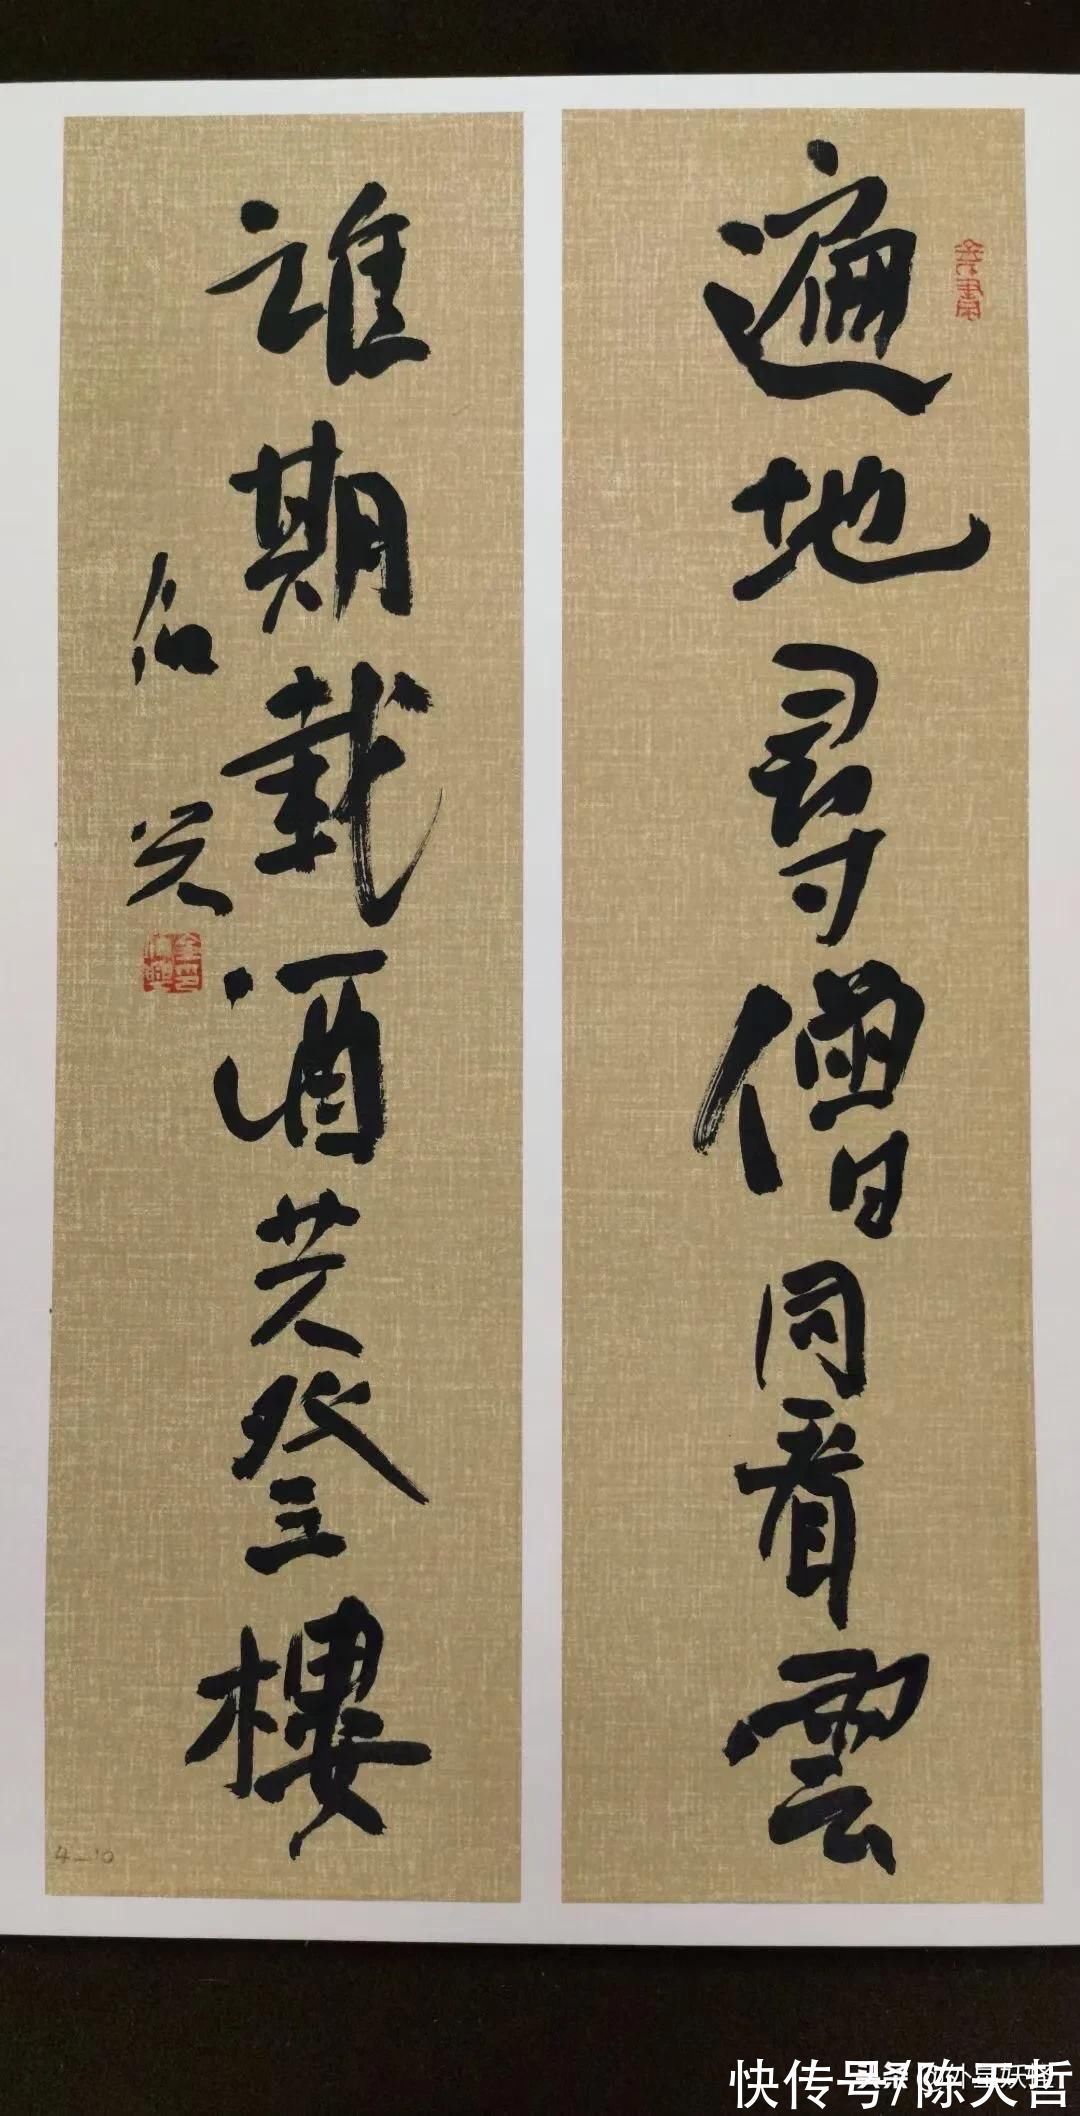 遍地尋僧同看雲
誰期載酒共登樓
伯兴
4-10
快传号/陈天哲